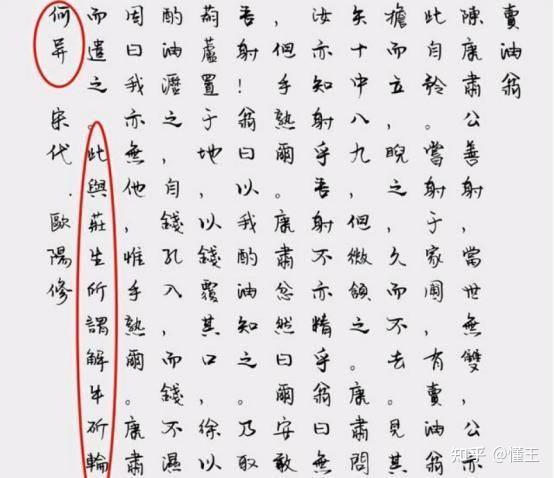 賣油翁
陳康肅公善射，當世無雙，公亦
此自矜。嘗射于家圃，有賣油翁
擔而立，睨之，久而不去。見其
矢十中八九，但微頷之。康肅問
汝亦知射乎。吾射不亦精乎。翁曰無
，但手熟爾。康肅忿然曰爾安敢
吾射！翁曰以我酌油知之。乃取
葫蘆置于地，以錢覆其口，徐以
酌油瀝之，自錢孔入，而錢不濕
因曰我亦無他，惟手熟爾。康肅
而遣之。此與莊生所謂解牛斫輪
何異 宋代·歐陽修
知乎 @懂王